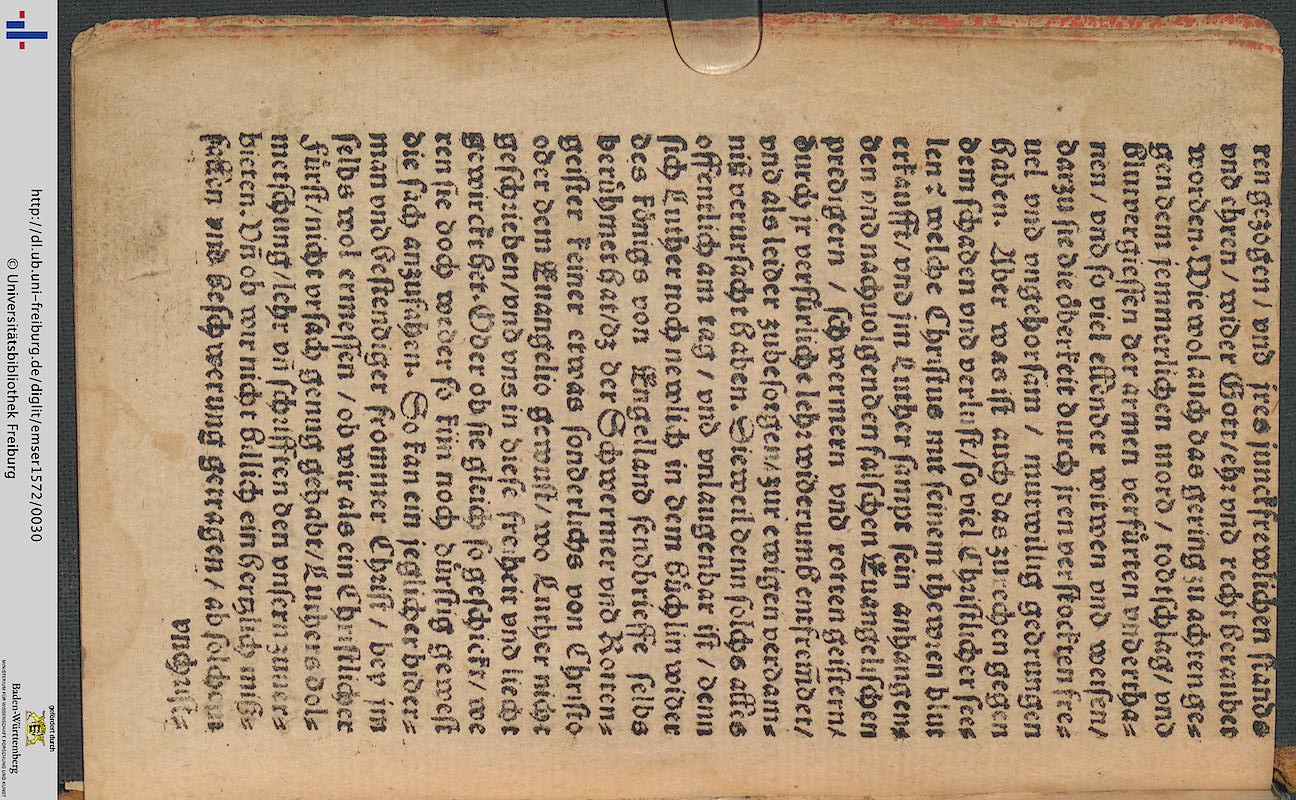 ren gezogen / vnd jres junckfrewlichen stands
vnd ehren / wider Gott / ehr vnd recht beraubet
worden. Wiewol auch das gering zu achten ge=
gen dem jemmerlichen mord / todtschlag / vnd
blutvergiessen der armen verfürten vnderthа=
nen / vnd so viel ellender witwen vnd weisen /
darzu sie die Oberkeit durch jren verstockten fre=
uel vnd vngehorsam / mutwillig gedrungen
haben. Aber was ist auch das zurechen gegen
dem schaden vnd verlust / so viel Christlicher see=
len: welche Christus mit seinem thewren blut
erkaufft / vnd jm Luther sampt sein anhangen=
den vnd nachuolgenden falschen Euangelischen
predigern / schwermern vnd rotten geistern /
durch jr verfürliche lehr widerumb entfrembdet /
vnd als leider zubesorgen / zur ewigen verdam=
niß verursacht haben. Dieweil denn solchs alles
offentlich am tag / vnd vnlaugenbar ist / denn
sich Luther noch newlich in dem büchlin wider
des Königs von Engelland sendbrieffe selbs
berühmet hat / dz der Schwermer vnd Rotten=
geister keiner etwas sonderlichs von Christo
oder dem Euangelio gewust / wo Luther nicht
geschrieben / vnd vns in diese freiheit vnd liecht
gewircket het. Oder ob sie gleich so geschickt / we
ren sie doch weder so kün noch dürstig gewest
die sach anzufahen. So kan ein jeglicher bider=
man vnd bestendiger frommer Christ / bey jm
selbs wol ermessen / ob wir als ein Christlicher
Fürst / nicht vrsach genug gehabt / Luthers dol=
metschung / lehr vñ schrifften den vnsern zuuer=
bieten. Vñ ob wir nicht billich ein hertzlich miß=
fallen vnd beschwerung getragen / ab solchem
vnchrist=
http://dl.ub.uni-freiburg.de/diglit/emser1572/0030
© Universitätsbibliothek Freiburg
gefördert durch
Baden-Württemberg
MINISTERIUM FÜR WISSENSCHAFT, FORSCHUNG UND KUNST